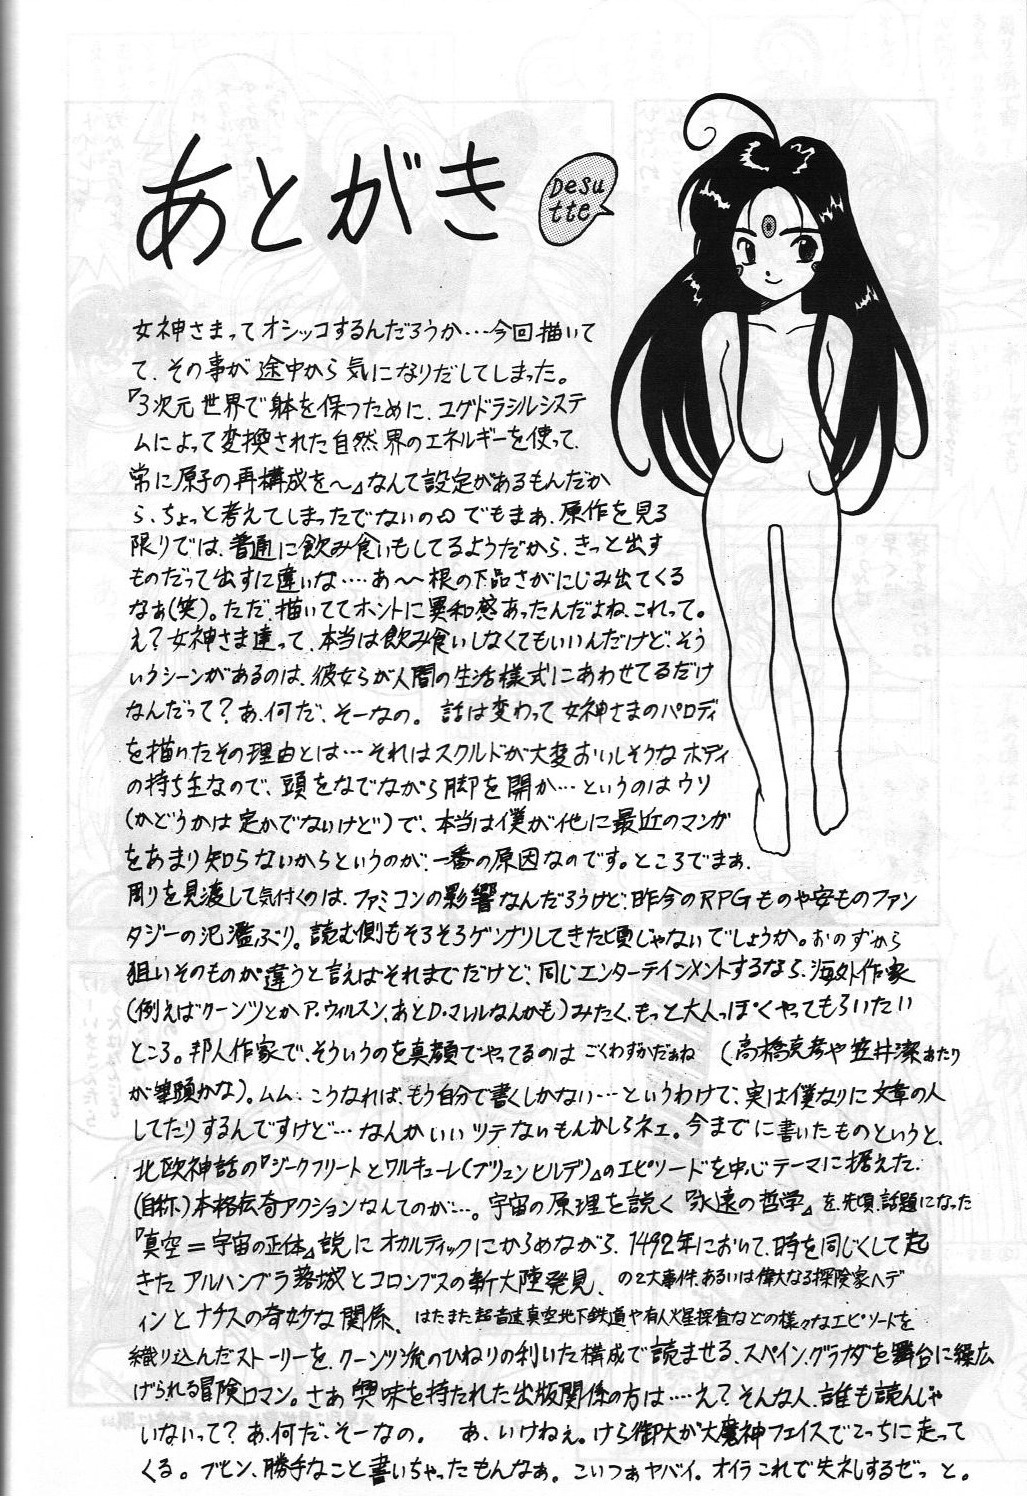 あとがき
Desu
tte
女神さまってオシッコするんだろうか…今回描いて
て、その事が途中から気になりだしてしまった。
『3次元世界で躰を保つために、ユグドラシルシステ
ムによって変換された自然界のエネルギーを使って、
常に原子の再構成を〜』なんて設定があるもんだか
ら、ちょっと考えてしまったでないの でもまぁ、原作を見る
限りでは、普通に飲み食いもしてるようだから、きっと出す
ものだって出すに違いな‥‥あ〜〜根の下品さがにじみ出てくる
なぁ(笑)。ただ、描いててホントに異和感あったんだよね、これって。
え？女神さま達って、本当は飲み食いしなくてもいいんだけど、そう
いうシーンがあるのは、彼女らが人間の生活様式にあわせてるだけ
なんだって？あ、何だ、そーなの。 話は変わって女神さまのパロディ
を描いたその理由とは…
(かどうかは定かでないけど)で、本当は僕が他に最近のマンガ
をあまり知らないからというのが、一番の原因なのです。ところでまぁ、
周りを見渡して気付くのは、ファミコンの影響なんだろうけど、昨今のRPGものや安ものファン
タジーの氾濫ぶり。読む側もそろそろゲンナリしてきた頃じゃないでしょうか。おのずから
狙いそのものが違うと言えばそれまでだけど、同じエンターテインメントするなら、海外作家
(例えばクーンツとかA・ウィルスン、あとD・マレルなんかも)みたく、もっと大人っぽくやってもらいたい
ところ。邦人作家で、そういうのを真顔でやってるのはごくわずかだぁね (高橋克彦や笠井潔あたり
が筆頭かな)。ムム‥こうなれば、もう自分で書くしかない…というわけで、実は僕なりに文章の人
してたりするんですけど…なんかいいツテないもんかしらネェ。今までに書いたものというと、
北欧神話の『ジークフリートとワルキューレ(ブリュンヒルデ)』のエピソードを中心テーマに据えた、
(自称)本格伝奇アクションなんてのが…。宇宙の原理を説く『永遠の哲学』を、先頃、話題になった
『真空＝宇宙の正体』説にオカルティックにからめながら、1492年において、時を同じくして起
きたアルハンブラ落城とコロンブスの新大陸発見、の2大事件、あるいは偉大なる探険家ヘデ
ィンとナチスの奇妙な関係、はたまた超音速真空地下鉄道や有人火星探査などの様々なエピソードを
織り込んだストーリーを、クーンツ流のひねりの利いた構成で読ませる、スペイン、グラナダを舞台に繰広
げられる冒険ロマン。さあ興味を持たれた出版関係の方は‥‥え？そんな人、誰も読んじゃ
いないって？あ、何だ、そーなの。 あ、いけねぇ。けら御大が大魔神フェイスでこっちに走って
くる。ブヒン、勝手なこと書いちゃったもんなぁ。こいつぁヤバイ。オイラこれで失礼するぜっと。